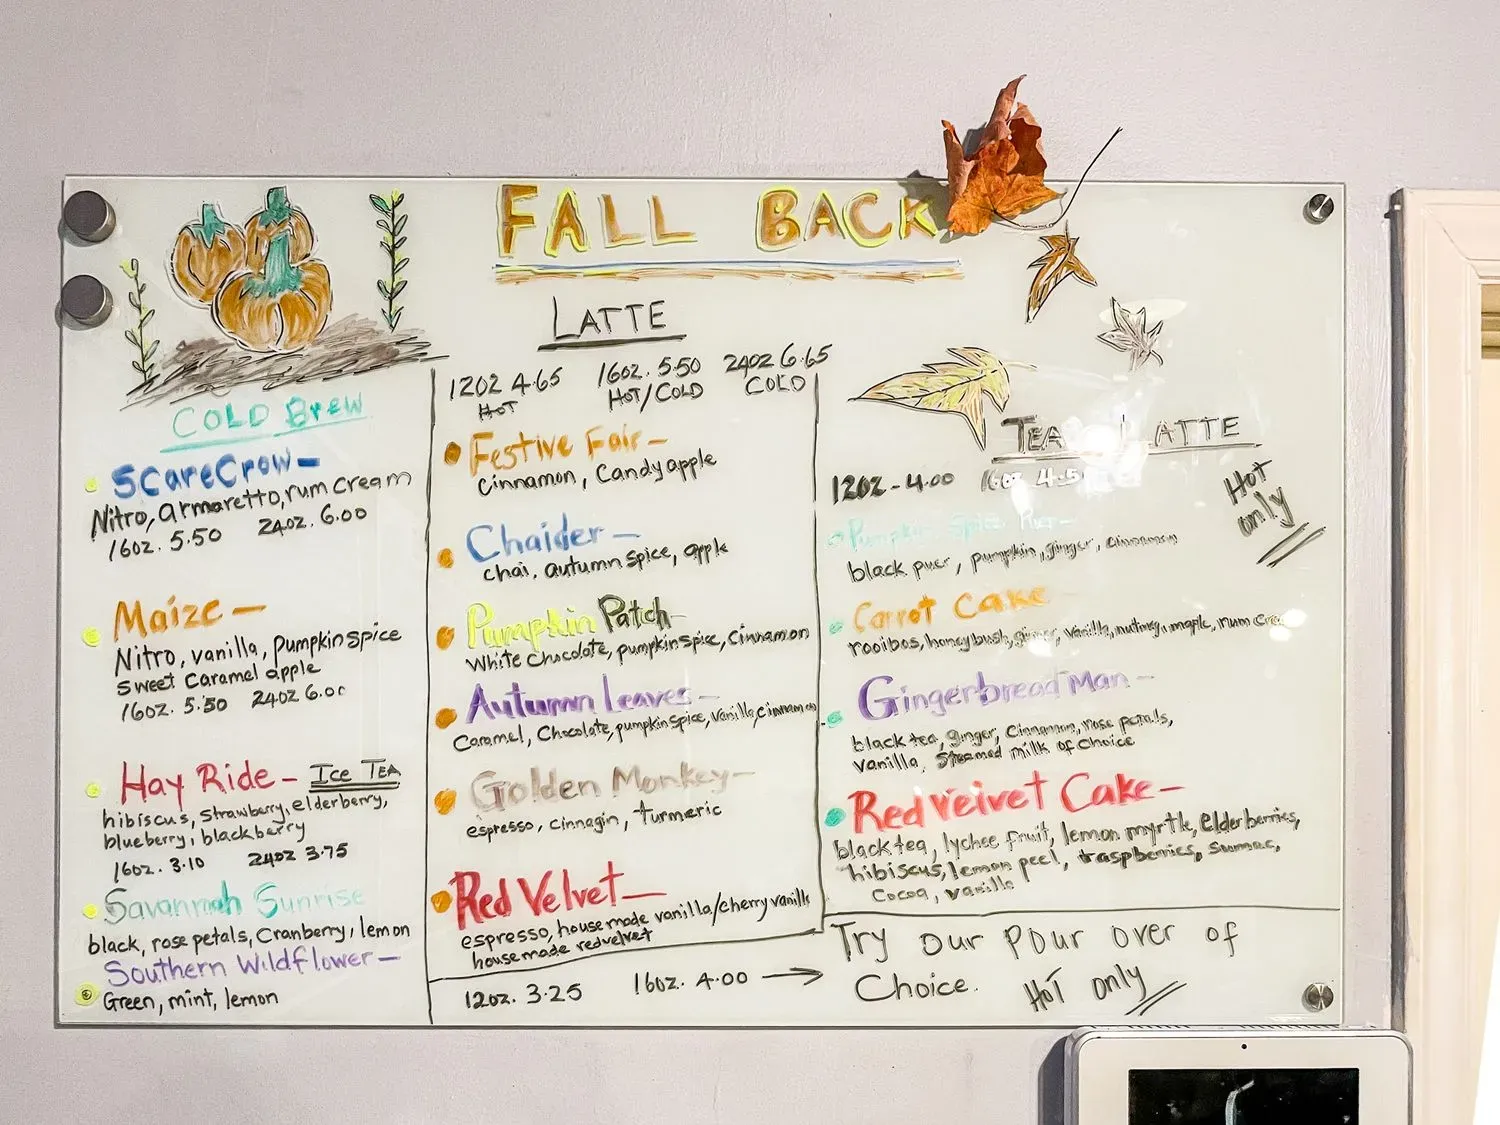 FALL BACK
COLD BREW
SCareCrow-
Nitro, armaretto, rum cream
16oz. 5.50 24oz. 6.00
Maize-
Nitro, vanilla, pumpkin spice
sweet caramel apple
16oz. 5.50 24oz 6.00
Hay Ride- ICe TEA
hibiscus, strawberry, elderberry,
blueberry, blackberry
16oz. 3.10 24oz 3.75
Savannah Sunrise
black, rose petals, Cranberry, lemon
Southern Wildflower-
Green, mint, lemon
LATTE
12oz 4.65 16oz. 5.50 24oz 6.65
HOT HOT/COLD COLD
Festive Fair-
Cinnamon, Candy apple
Chaider-
chai, autumn spice, apple
Pumpkin Patch-
White Chocolate, pumpkin spice, cinnamon
Autumn Leaves-
Caramel, Chocolate, pumpkin spice, vanilla, cinnamon
Golden Monkey-
espresso, cinnagin, turmeric
Red Velvet-
espresso, house made vanilla/cherry vanilla
house made redvelvet
12oz. 3.25 16oz. 4.00
TEA LATTE
12oz - 4.00 16oz 4.5
HOT
only
Pumpkin Spice Puer-
black puer, pumpkin, ginger, cinnamon
Carrot Cake
rooibos, honeybush, ginger, vanilla, nutmeg, maple, rum
Gingerbread Man-
black tea, ginger, Cinnamon, rose petals,
vanilla, Steamed milk of choice
Red Velvet Cake-
black tea, lychee fruit, lemon myrtle, Elderberries,
hibiscus, lemon peel, raspberries, Sumac,
Cocoa, vanilla
Try our pour over of
Choice. HOT only